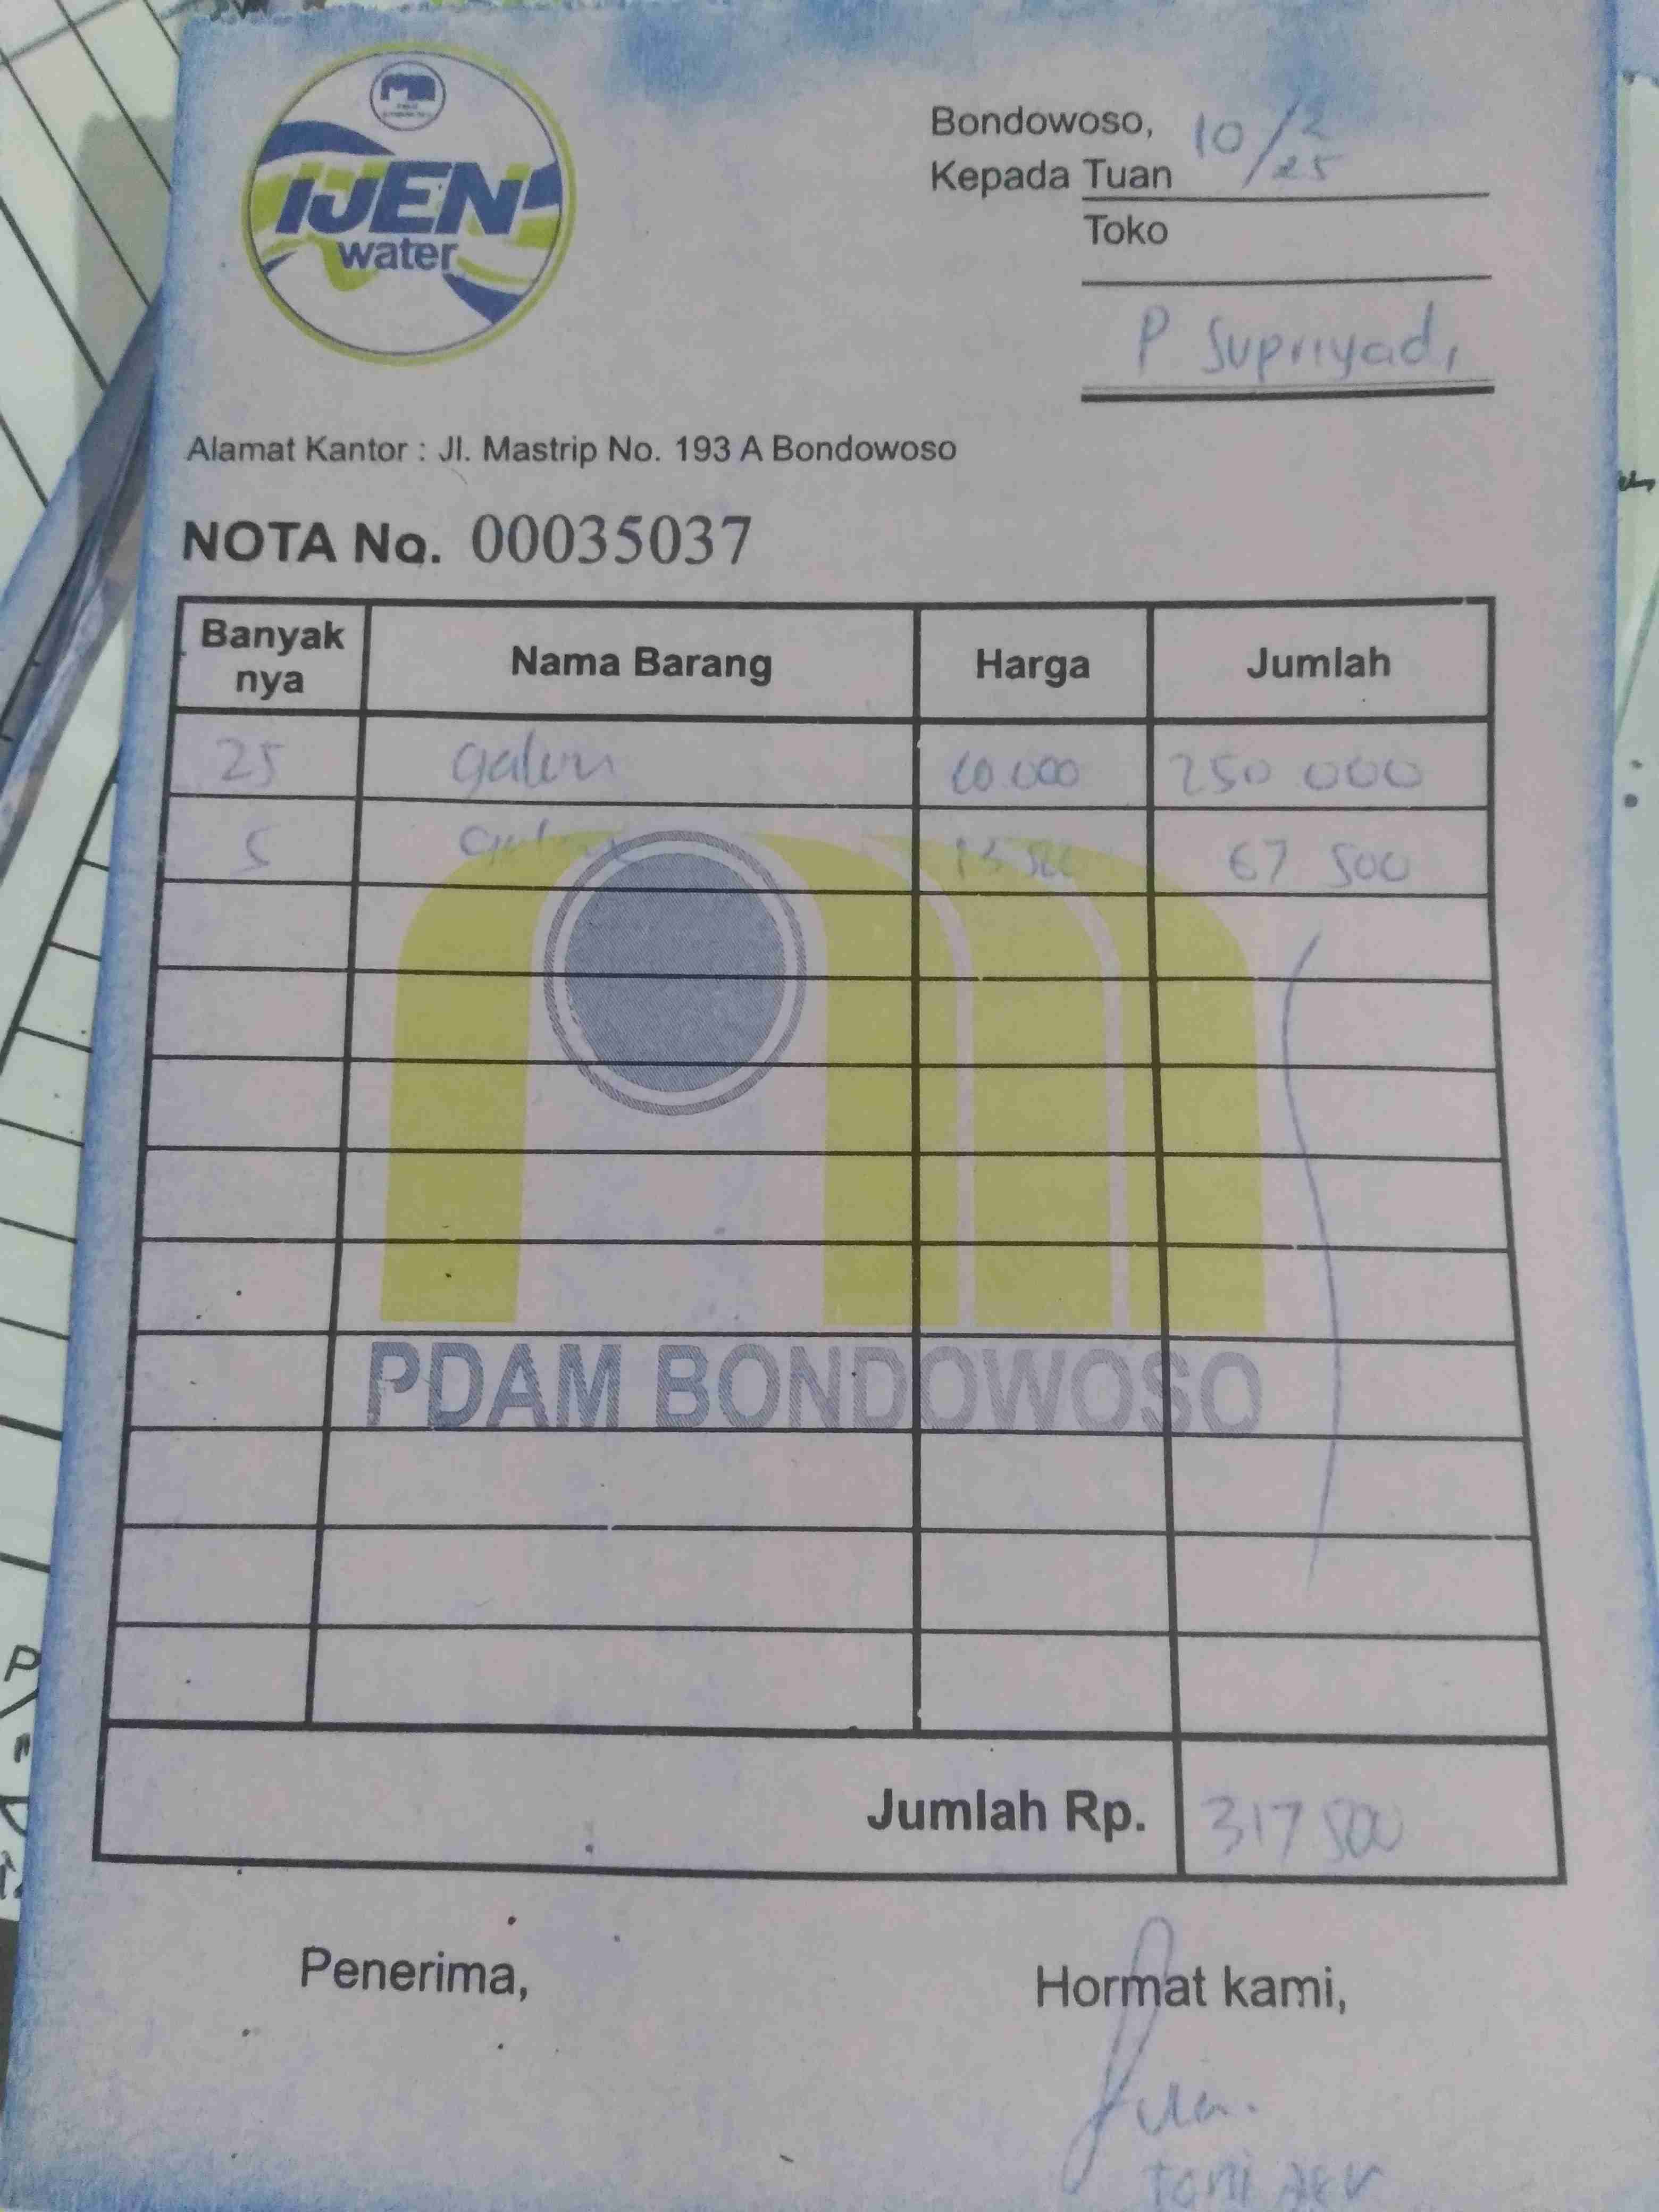 IJEN
water
Bondowoso, 10/2 25
Kepada Tuan
Toko
P Supriyadi
Alamat Kantor : Jl. Mastrip No. 193 A Bondowoso
NOTA No. 00035037
Banyak nya Nama Barang Harga Jumlah
25 galon 10 000 250 000
5 galon 13 500 67 500
PDAM BONDOWOSO
Jumlah Rp. 317 500
Penerima, Hormat kami,